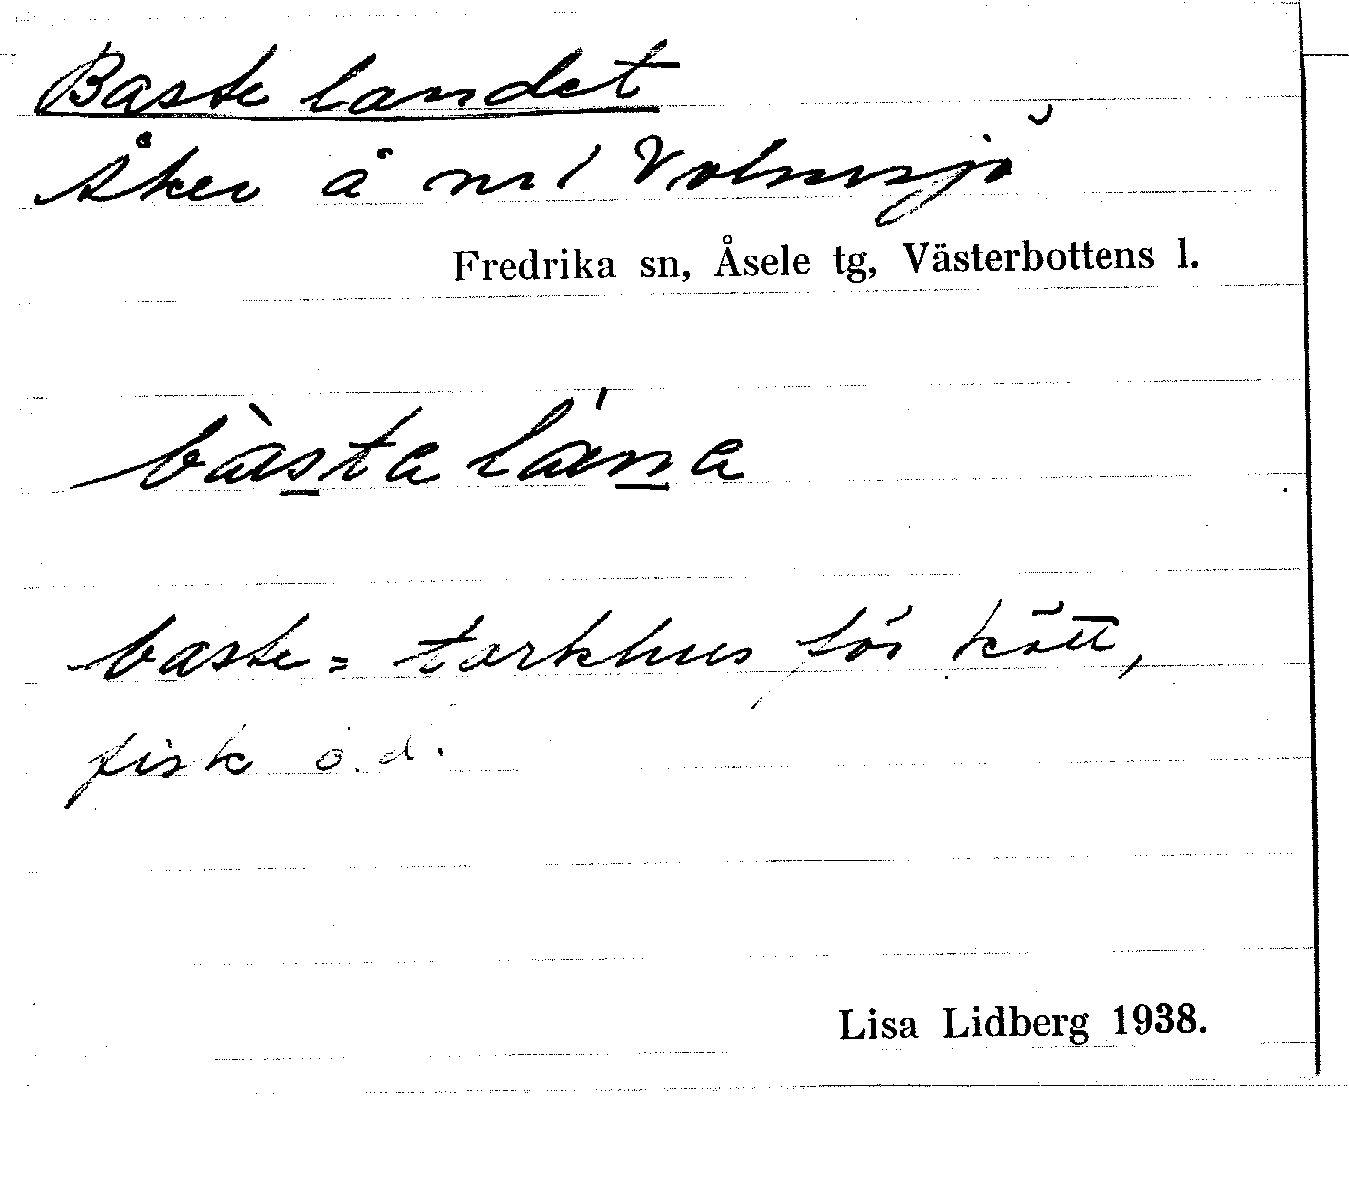 Bastelandet
Åker å nr 1 Volmsjö
Fredrika sn, Åsele tg, Västerbottens l.
bàstaláṉa
baste = torkhus för kött,
fisk o.d.
Lisa Lidberg 1938.